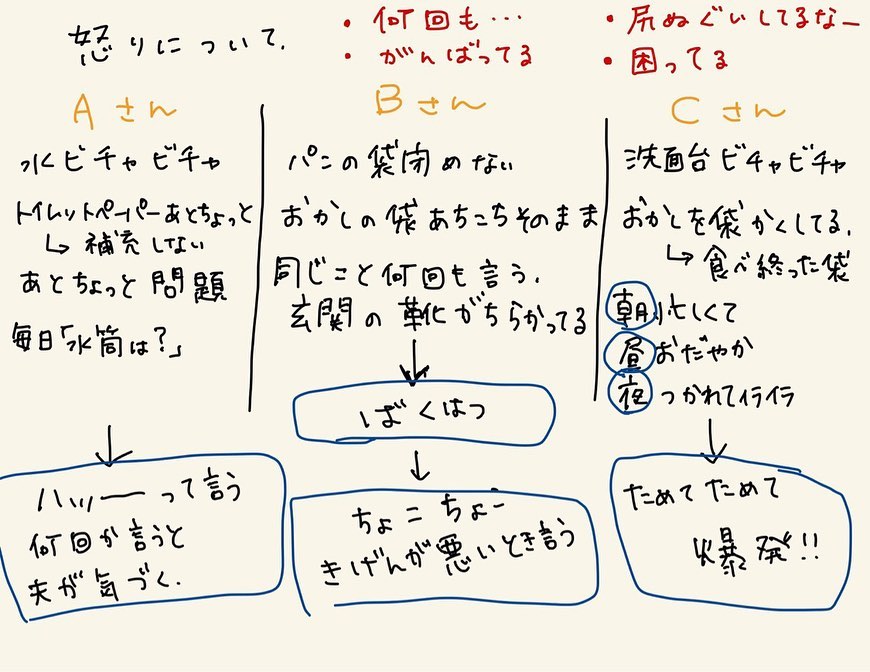 怒りについて.
・何回も…
・がんばってる
・尻ぬぐいしてるなー
・困ってる
Aさん
水ビチャビチャ
トイレットペーパーあとちょっと
↳補充しない
あとちょっと問題
毎日「水筒は?」
ハァーって言う
何回か言うと
夫が気づく.
Bさん
パンの袋閉めない
おかしの袋あちこちそのまま
同じこと何回も言う.
玄関の靴がちらかってる
ばくはつ
ちょこちょこ
きげんが悪いとき言う
Cさん
洗面台ビチャビチャ
おかしを袋かくしてる.
↳食べ終った袋
朝忙しくて
昼おだやか
夜つかれてイライラ
ためてためて
爆発!!